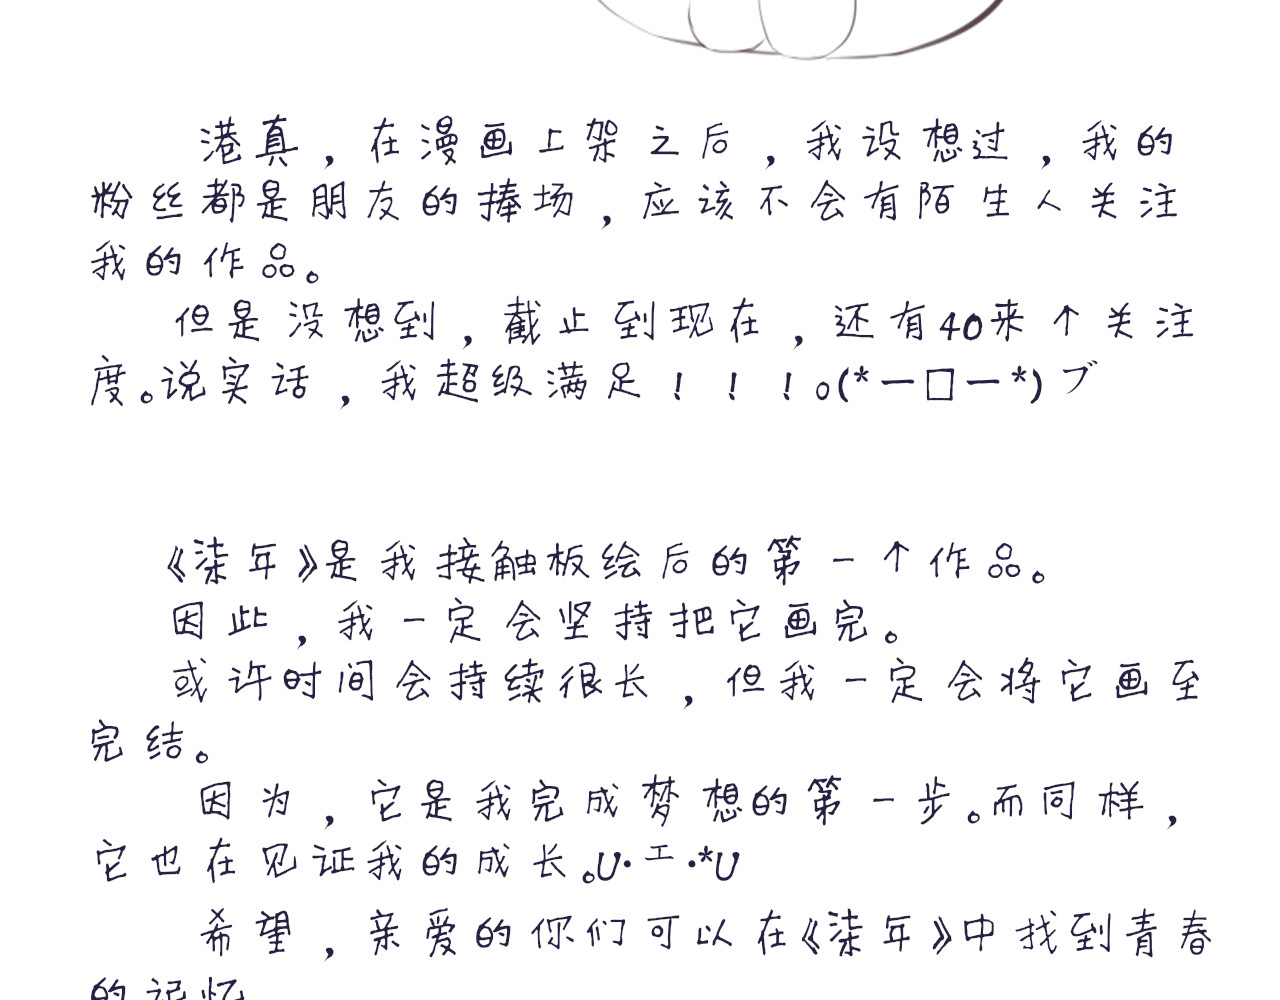 港真，在漫画上架之后，我设想过，我的
粉丝都是朋友的捧场，应该不会有陌生人关注
我的作品。
但是没想到，截止到现在，还有40来个关注
度。说实话，我超级满足！！！o(*一口一*)ブ
《柒年》是我接触板绘后的第一个作品。
因此，我一定会坚持把它画完。
或许时间会持续很长，但我一定会将它画至
完结。
因为，它是我完成梦想的第一步。而同样，
它也在见证我的成长。U·エ·*U
希望，亲爱的你们可以在《柒年》中找到青春
的记忆